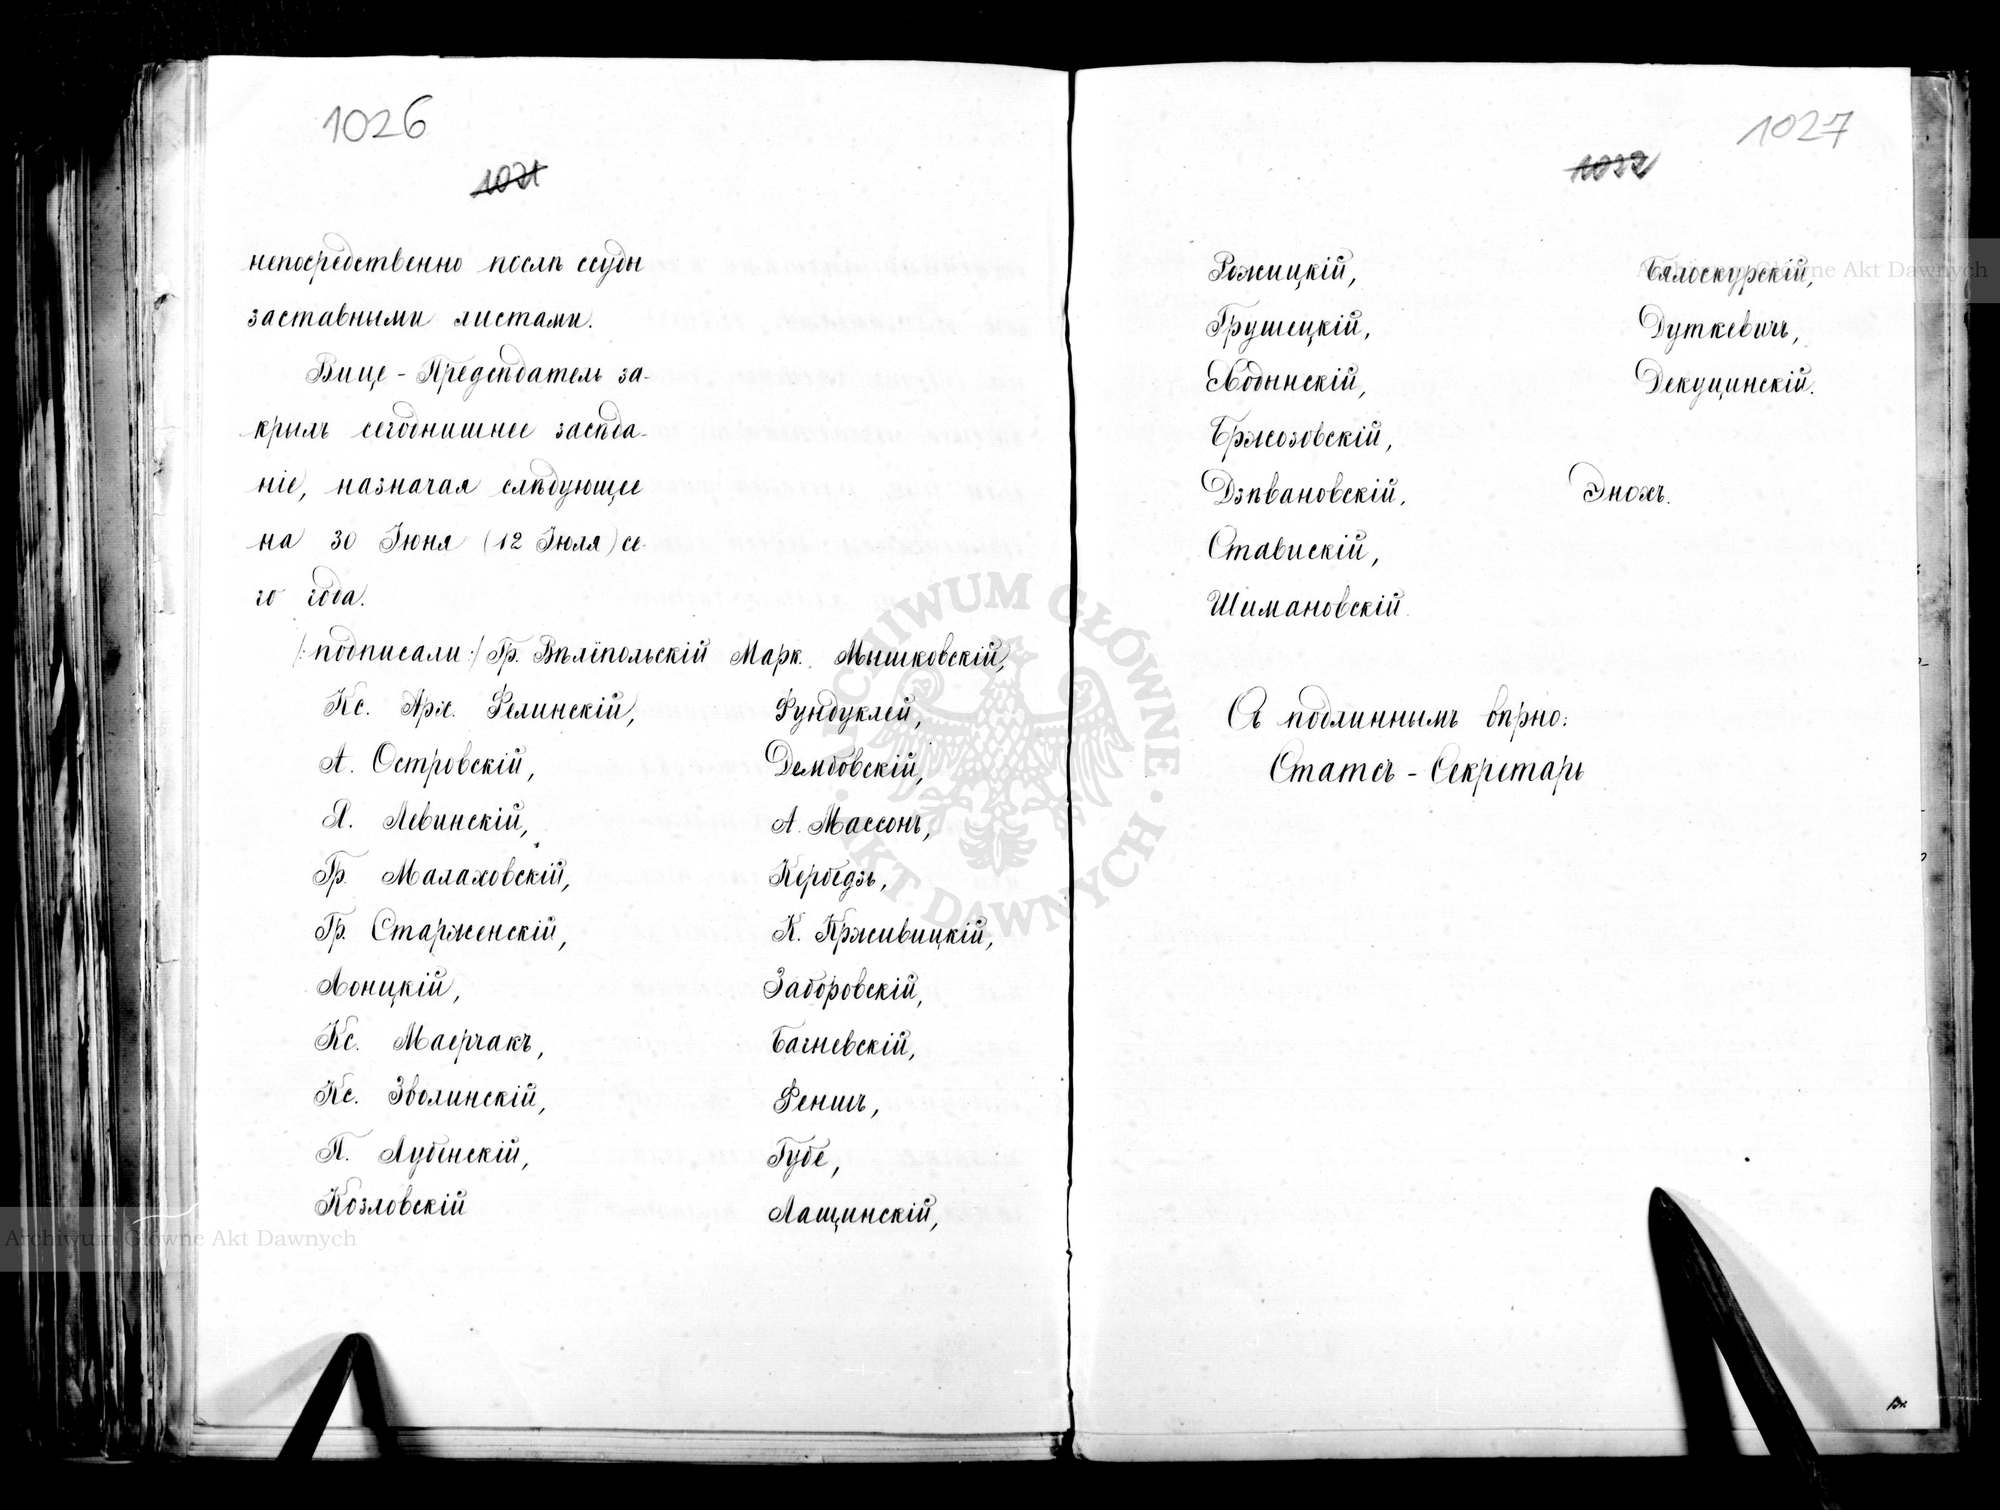 1026
1021
непосредственно послѣ ссуды
заставными листами.
Вице-Предсѣдатель за-
крылъ сегоднишнее засѣда-
ніе, назначая слѣдующее
на 30 Іюня (12 Іюля) се-
го года.
/:подписали:/ Гр. Вѣліпольскій Марк. Мышковскій,
Кс. Арх. Фелинскій, Фундуклей,
А. Островскій, Дембовскій,
Я. Левинскій, А. Массонъ,
Гр. Малаховскій, Кербедзь,
Гр. Старженскій, К. Крживицкій,
Лонцкій, Заборовскій,
Кс. Маерчакъ, Багневскій,
Кс. Зволинскій, Феншъ,
П. Лубенскій, Губе,
Козловскій Лащинскій,
1027
1022
Рожицкій, Бялоскурскій,
Грушецкій, Дуткевичъ,
Ходынскій, Декуцинскій.
Бржозовскій,
Дзѣвановскій, Энохъ.
Ставискій,
Шимановскій.
Съ подлиннымъ вѣрно:
Статсъ-Секретарь
ARCHIWUM GŁÓWNE AKT DAWNYCH
Archiwum Główne Akt Dawnych
Archiwum Główne Akt Dawnych